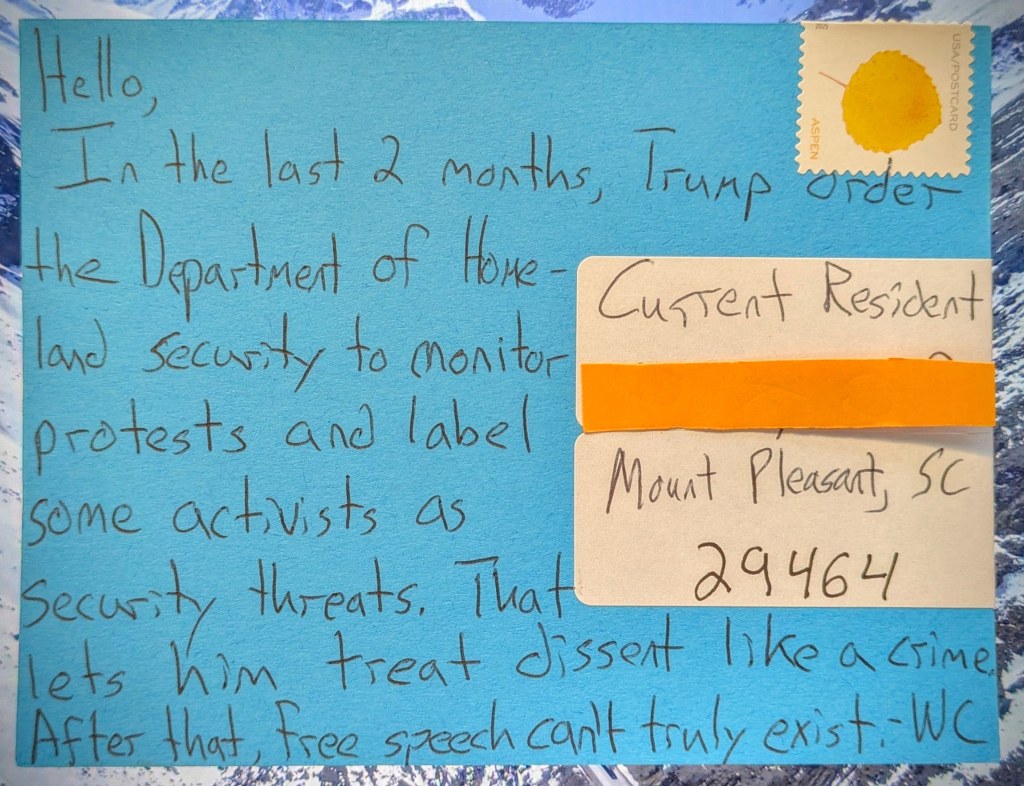 Hello,
In the last 2 months, Trump order
the Department of Home-
land security to monitor
protests and label
some activists as
security threats. That
lets him treat dissent like a crime.
After that, free speech can't truly exist. -WC
2025
USA/POSTCARD
ASPEN
Current Resident
Mount Pleasant, SC
29464